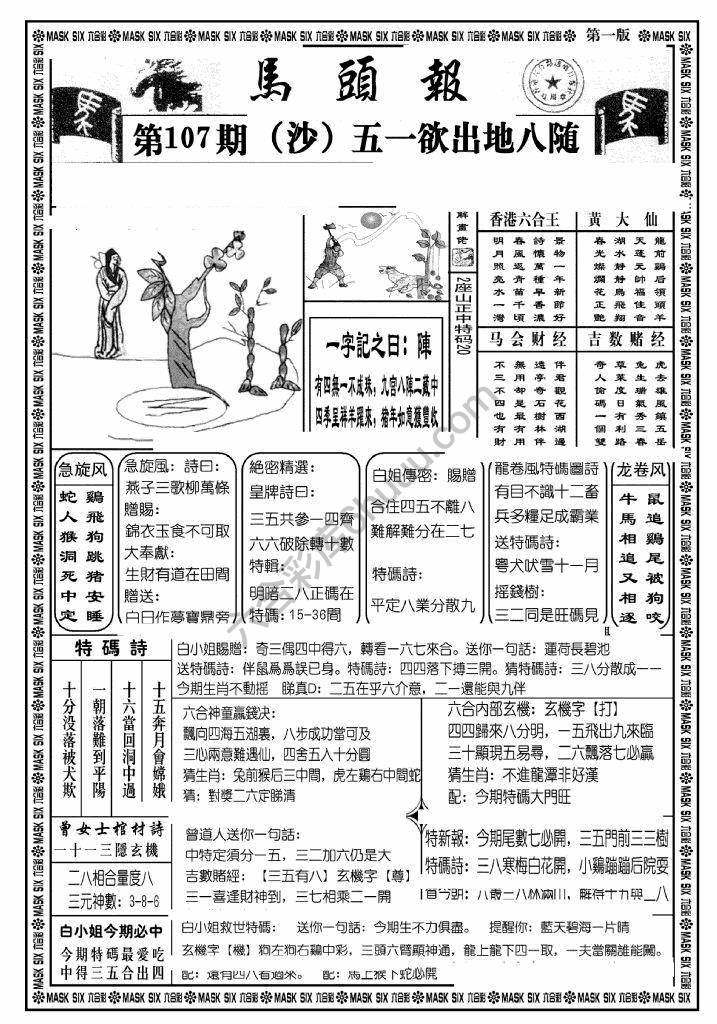 MASK SIX 六合彩
第一版
馬頭報
第107期（沙）五一欲出地八随
解畫佬
2座山正中特码20
一字記之曰：陣
有四無一不成珠，九宫八陣二藏中
四季呈祥羊躍來，猪年如意獲豐收
香港六合王
景物一年新節好
詩懷萬種早香濃
春風返青苗千頃
明月照亮水一灣
黄大仙
龍前鷄后領頭羊
天蓬元帥福佳音
湖水靜靜鳥飛翔
春光燦爛花正艷
马会财经
伴君觀花西湖邊
遠亭奇石樹林伴
無用却是最有用
不三不四也有財
吉数赌经
虎去雄風鎮五岳
兔生瑞氣秀三春
草菜度日有利路
奇人偷碼一個雙
急旋风
鷄飛狗跳猪安睡
蛇人猴洞死中定
急旋風：詩曰：
燕子三歌柳萬條
贈賜：
錦衣玉食不可取
大奉獻：
生財有道在田間
贈送：
白日作夢寶鼎旁
絶密精選：
皇牌詩曰：
三五共參一四齊
六六破除轉十數
特輯：
明暗二八正碼在
特碼：15-36間
白姐傳密：賜贈
合住四五不離八
難解難分在二七
特碼詩：
平定八業分散九
龍卷風特碼圖詩
有目不識十二畜
兵多糧足成霸業
送特碼詩：
粤犬吠雪十一月
摇錢樹：
三二同是旺碼見
龙卷风
鼠追鷄尾被狗咬
牛馬相追又相逐
特碼詩
十五奔月會嫦娥
十六當回洞中過
一朝落難到平陽
十分没落被犬欺
白小姐賜贈：奇三偶四中得六，轉看一六七來合。送你一句話：蓮荷長碧池
送特碼詩：伴鼠爲爲誤已身。特碼詩：四四落下搏三開。猜特碼詩：三八分散成一一
今期生肖不動摇　睇真D：二五在乎六介意，二一還能與九伴
六合神童贏錢决：
飄向四海五湖裏，八步成功當可及
三心兩意難遇仙，四舍五入十分圓
猜生肖：兔前猴后三中間，虎左鷄右中間蛇
猜：對獎二六定睇清
六合内部玄機：玄機字【打】
四四歸來八分明，一五飛出九來臨
三十顯現五易尋，二六飄落七必贏
猜生肖：不進龍潭非好漢
配：今期特碼大門旺
曾女士棺材詩
一十一三隱玄機
二八相合量度八
三元神數：3-8-6
曾道人送你一句話：
中特定須分一五，三二加六仍是大
吉數賭經：【三五有八】玄機字【尊】
三一喜逢財神到，三七相乘二一開
特新報：今期尾數七必開，三五門前三三樹
特碼詩：三八寒梅白花開，小鷄蹦蹦后院耍
白小姐今期必中
今期特碼最愛吃
中得三五合出四
白小姐救世特碼：　送你一句話：今期生不力俱盡。　提醒你：藍天碧海一片晴
玄機字【機】狗左狗右鷄中彩，三頭六臂顯神通，龍上龍下四一取，一夫當關誰能闖。
配：還有四八看過來。　配：馬上猴下蛇必開